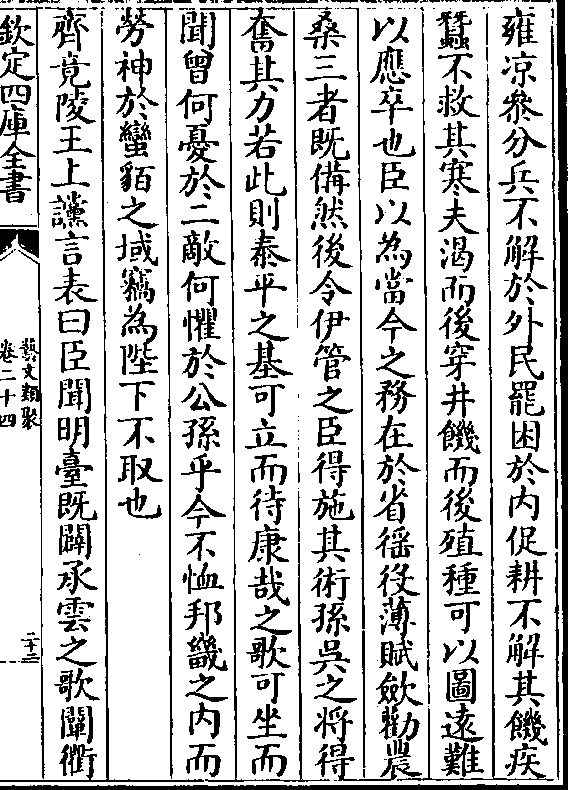 雍凉叅分兵不解於外民罷困於内促耕不解其饑疾
蠶不救其寒夫渴而後穿井饑而後殖種可以圖遠難
以應卒也臣以為當今之務在於省徭役薄賦歛勸農
桑三者既備然後令伊管之臣得施其術孫吳之將得
奮其力若此則泰平之基可立而待康哉之歌可坐而
聞曾何憂於二敵何懼於公孫乎今不恤邦畿之内而
勞神於蠻貊之域竊為陛下不取也
齊竟陵王上讜言表曰臣聞明臺既闢承雲之歌闡衢
欽定四庫全書
藝文類聚
卷二十四
二十三